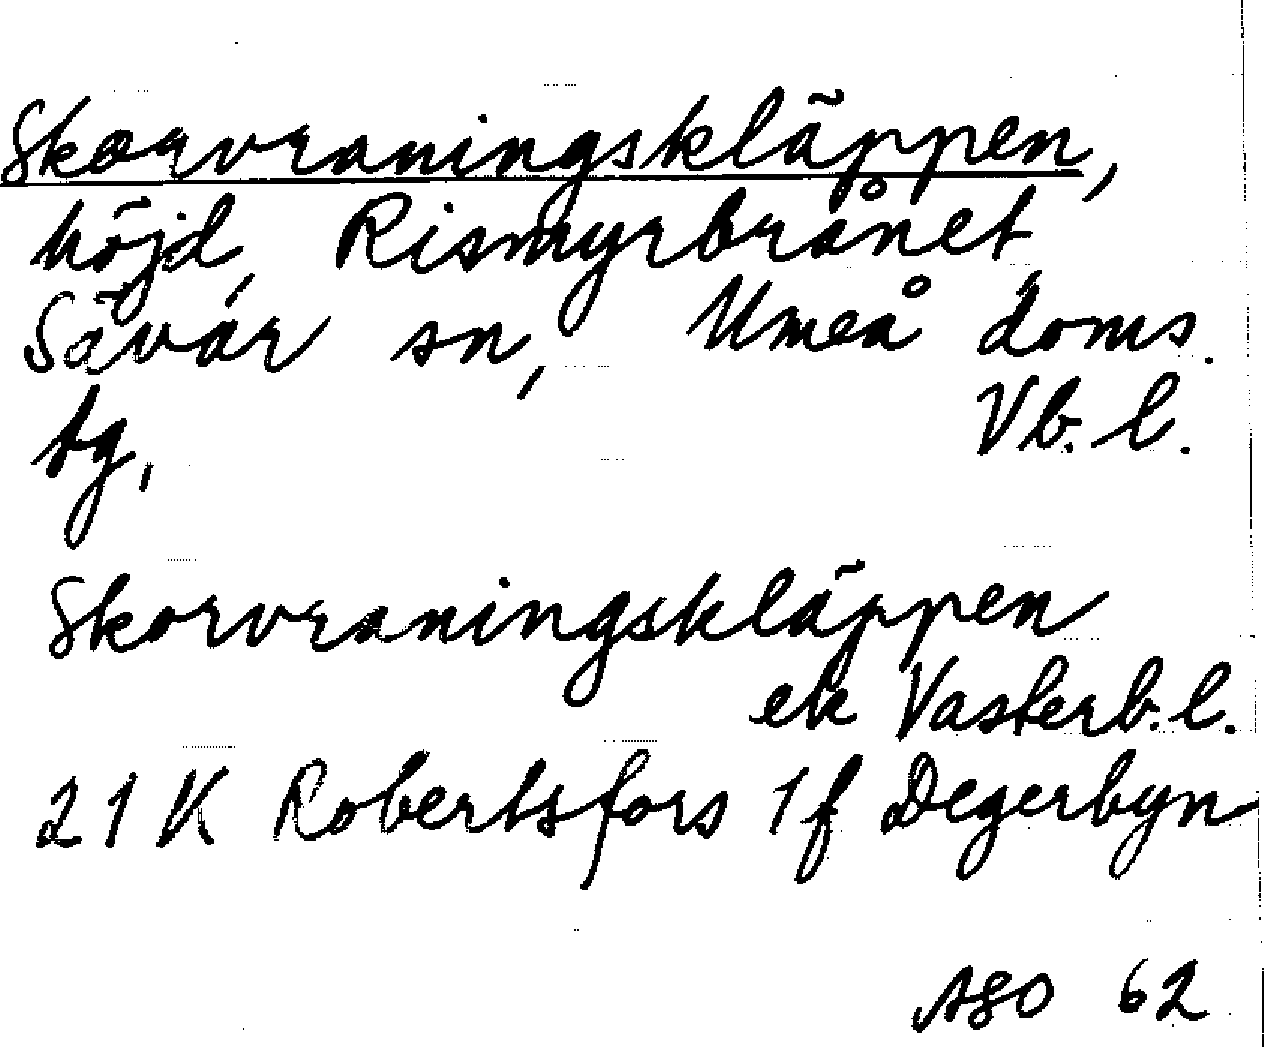 Skorvraningskläppen,
höjd, Rismyrbrånet,
Sävar sn, Umeå doms.
tg, Vb. l.
Skorvraningskläppen
ek Västerb. l.
21 K Robertsfors 1f Degerbyn
ASO 62